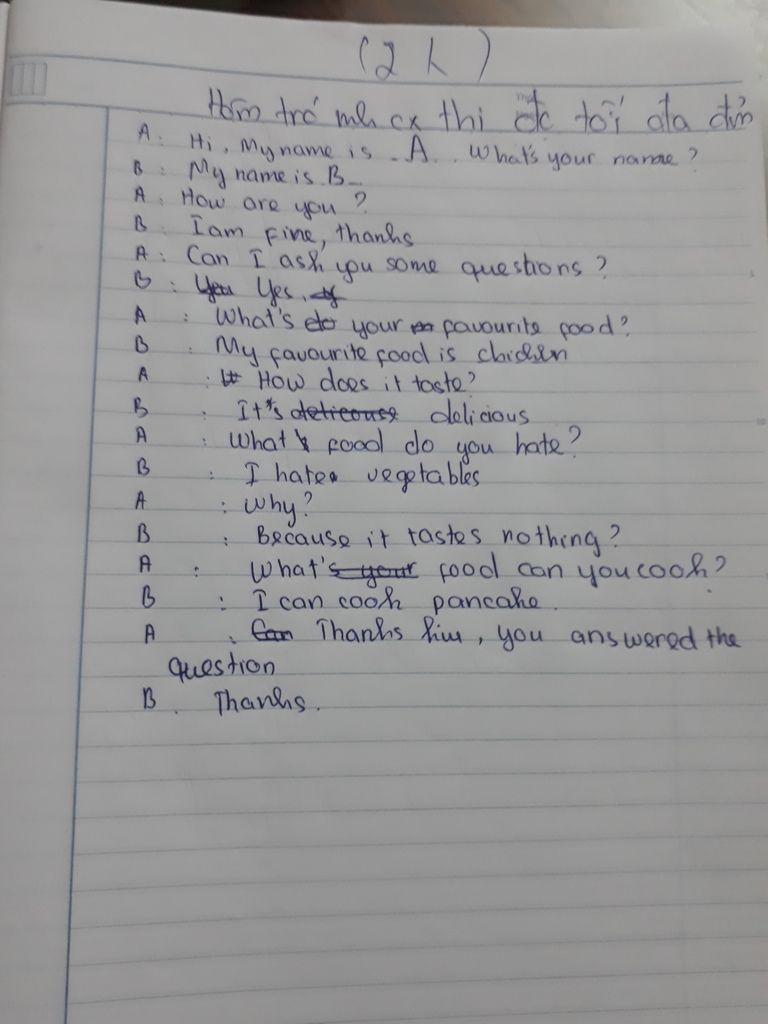 (2 k)
Hôm trớ mh cx thi đc tối đa đấy
A: Hi, My name is .A.. What's your name?
B: My name is B...
A: How are you?
B: I am fine, thanks
A: Can I ask you some questions?
B: Yes.
A: What's your favourite food?
B: My favourite food is chicken
A: How does it taste?
B: It's delicious
A: What food do you hate?
B: I hate vegetables
A: Why?
B: Because it tastes nothing?
A: What food can you cook?
B: I can cook pancake.
A: Thanks , you answered the
question
B. Thanks.